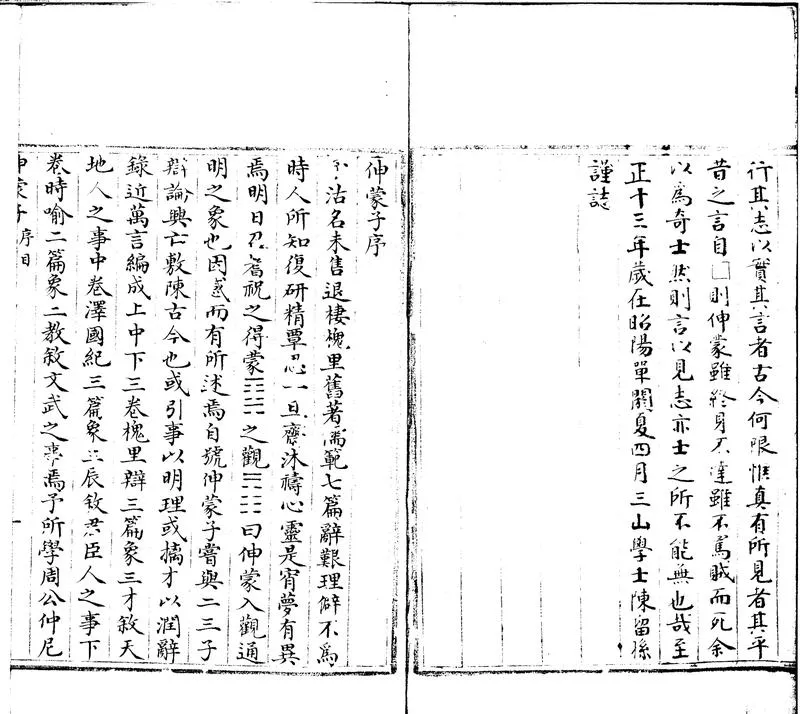 行其志以實其言者古今何限惟真有所見者其平
昔之言自□則伸蒙雖終身不達雖不為賊而死余
以為奇士然則言以見志亦士之所不能無也哉至
正十三年歲在昭陽單閼夏四月三山學士陳留孫
謹誌
伸蒙子序
沽名未售退棲槐里舊著儒範七篇辭艱理僻不為
時人所知復研精覃思一旦齋沐禱心靈是宵夢有異
焉明日召耆祝之得蒙䷃之觀䷓曰伸蒙入觀通
明之象也因感而有所述焉自號伸蒙子嘗與二三子
辯論興亡敷陳古今也或引事以明理或摛才以潤辭
錄近萬言編成上中下三卷槐里辯三篇象三才敘天
地人之事中卷澤國紀三篇象三辰敘君臣人之事下
卷時喻二篇象二教敘文武之事焉予所學周公仲尼
伸蒙子 序目